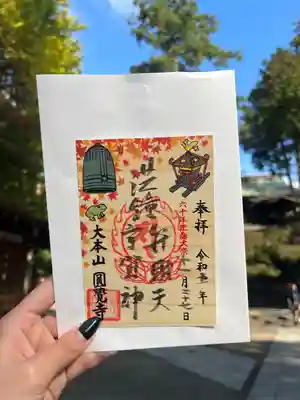 奉拝 令和五年
十一月二十七日
洪鐘弁財天
宇賀神
大本山 圓覺寺